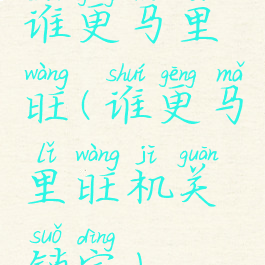 谁更马里
wàng shuí gēng mǎ
旺(谁更马
lǐ wàng jī guān
里旺机关
suǒ dìng
锁定)